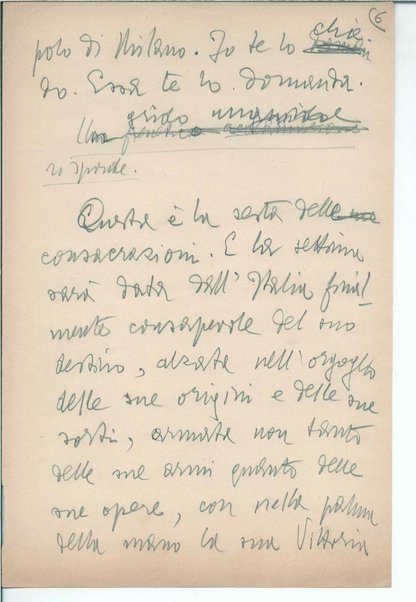 6
polo di Milano. Io te lo chie-
do. Essa te lo domanda.
Un grido unanime
risponde.
Questa è la sesta delle
consacrazioni. E la settima
sarà data dall'Italia final-
mente consapevole del suo
destino, alzata nell'orgoglio
delle sue origini e delle sue
sorti, armata non tanto
delle sue armi quanto delle
sue opere, con nella palma
della mano la sua Vittoria